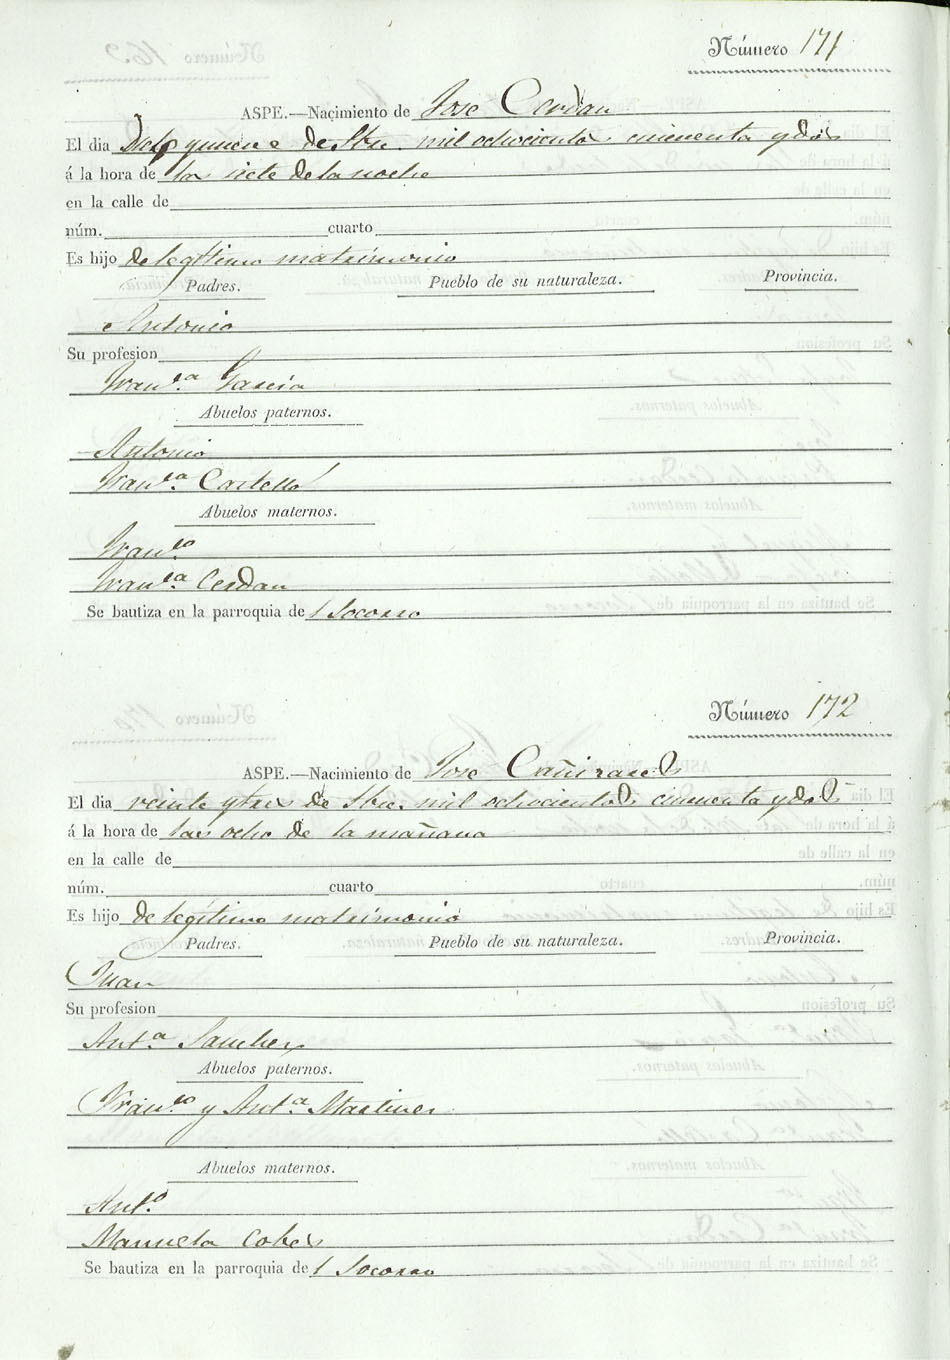 Número 171
ASPE.—Nacimiento de Jose Cerdan
El dia quince de Sbre. mil ochocientos cincuenta y dos
á la hora de las siete de la noche
en la calle de
núm. cuarto
Es hijo de legítimo matrimonio
Padres. Pueblo de su naturaleza. Provincia.
Antonio
Su profesion
Franca. Garcia
Abuelos paternos.
Antonio
Franca. Castelló
Abuelos maternos.
Franco
Franca. Cerdan
Se bautiza en la parroquia de l Socorro
Número 172
ASPE.—Nacimiento de Jose Cañizares
El dia veinte y tres de Sbre. mil ochocientos cincuenta y dos
á la hora de las ocho de la mañana
en la calle de
núm. cuarto
Es hijo de legítimo matrimonio
Padres. Pueblo de su naturaleza. Provincia.
Juan
Su profesion
Anta. Sanchez
Abuelos paternos.
Franco. y Anta. Martinez
Abuelos maternos.
Anto.
Manuela
Se bautiza en la parroquia de l Socorro